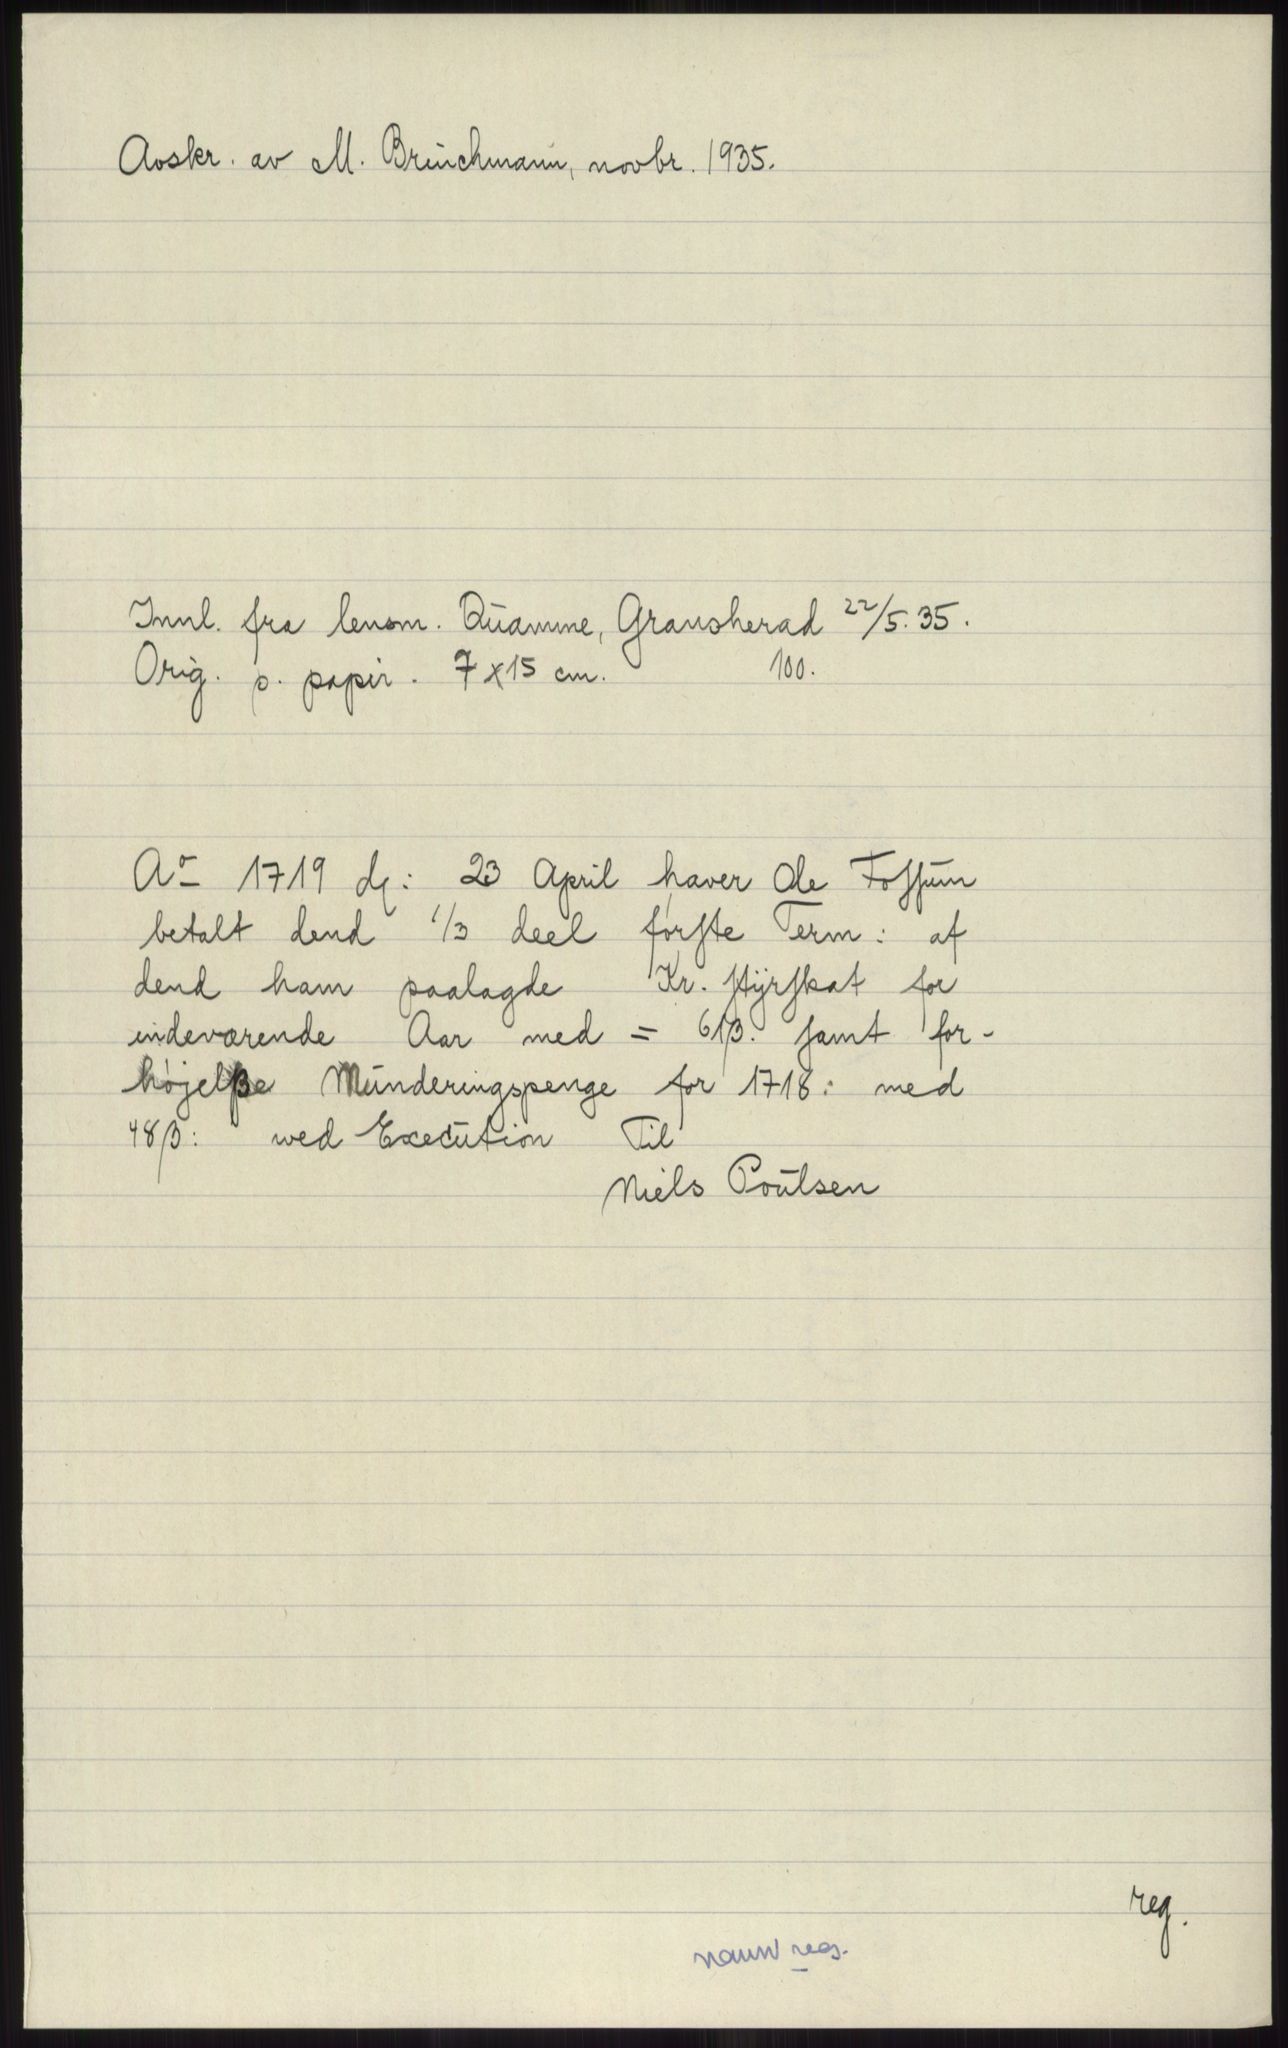 Avskr. av M. Brinchmann, novbr. 1935.
Innl. fra lensm. Quamme, Gransherad 22/5. 35.
Orig. p. papir. 7 x 15 cm. 100.
Ao 1719 d: 23 April haver Ole Fossum
betalt dend 1/3 deel förste Term: af
dend ham paalagde Kr. styrskat for
indeværende Aar med = 61β. samt for-
höjelße Munderingspenge for 1718: med
48β: wed Execution Til
Niels Poulsen
reg.
navn reg.